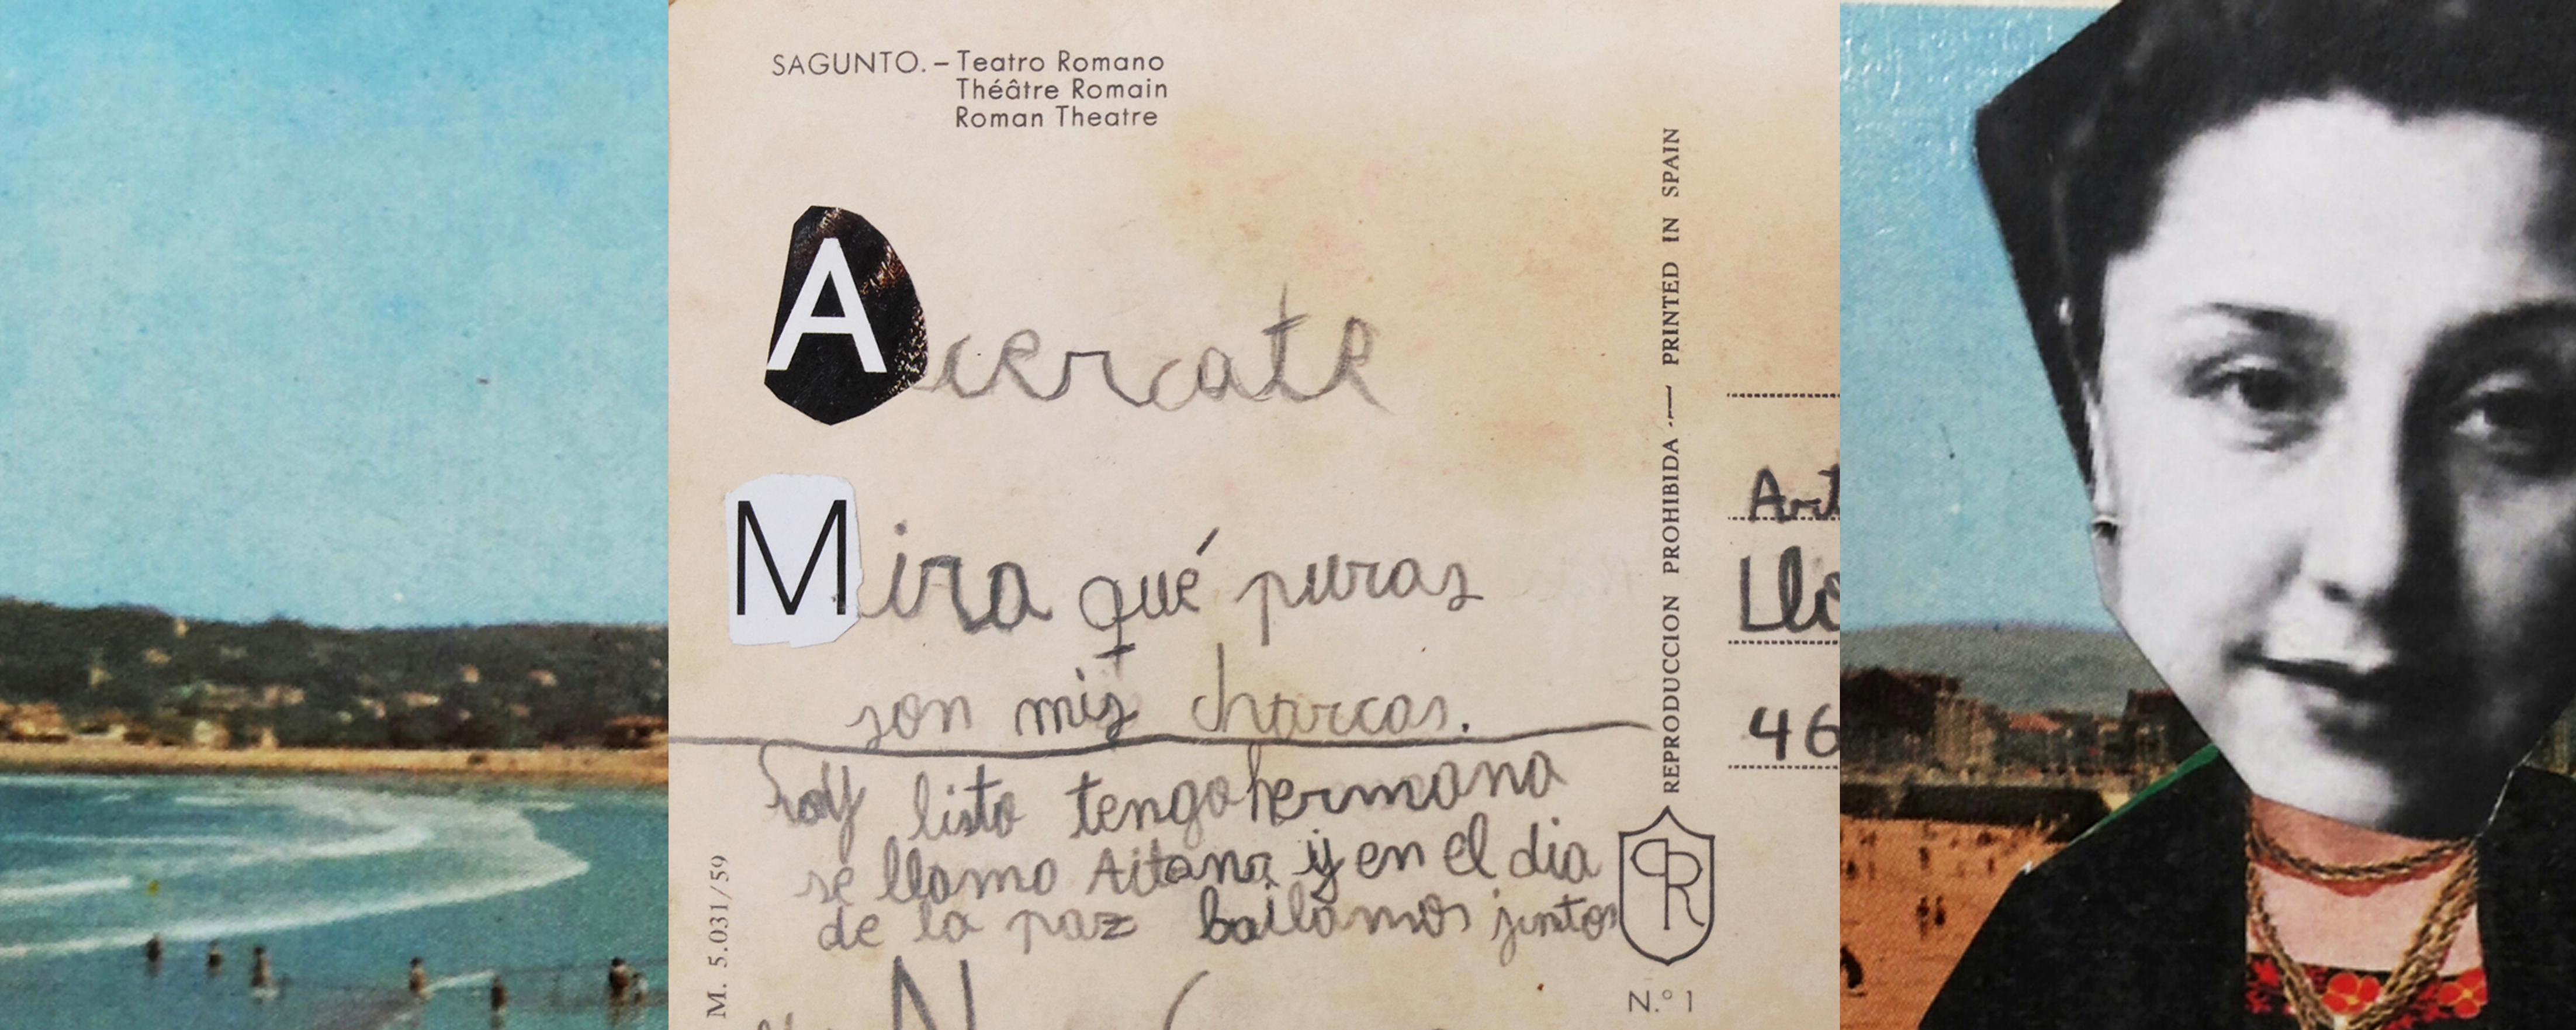 SAGUNTO. – Teatro Romano
Théâtre Romain
Roman Theatre
Acercate
Mira qué puras
son mis charcas.
Soy listo tengo hermana
se llama Aitana y en el dia
de la paz bailamos juntos
M. 5.031/59
REPRODUCCION PROHIBIDA — PRINTED IN SPAIN
PR
N.º 1
Art
Llo
46